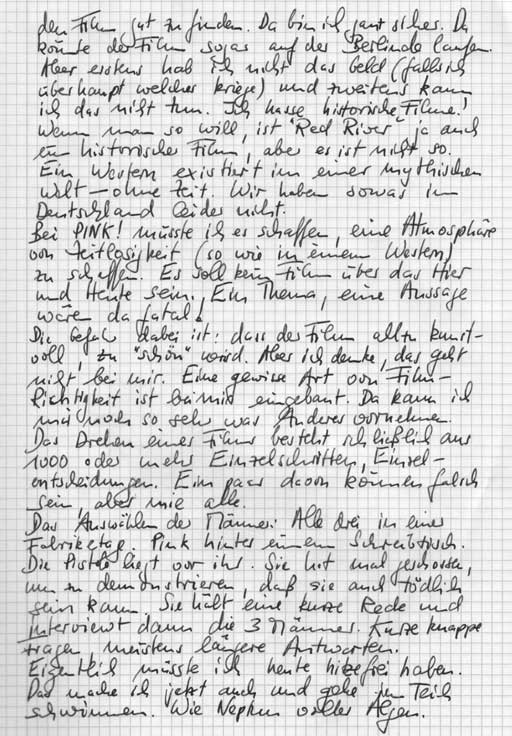 den Film gut zu finden. Da bin ich ganz sicher. Da
könnte der Film sogar auf der Berlinale laufen.
Aber erstens hab ich nicht das Geld (falls ich
überhaupt welches kriege) und zweitens kann
ich das nicht tun. Ich hasse historische Filme!
Wenn man so will, ist "Red River" ja auch
ein historischer Film, aber es ist nicht so.
Ein Western existiert in einer mythischen
Welt – ohne Zeit. Wir haben sowas in
Deutschland leider nicht.
Bei PINK! müsste ich es schaffen, eine Atmosphäre
von Zeitlosigkeit (so wie in einem Western)
zu schaffen. Es soll kein Film über das Hier
und Heute sein. Ein Thema, eine Aussage
wären da fatal.
Die Gefahr dabei ist: dass der Film allzu kunst-
voll, zu "schön" wird. Aber ich denke, das geht
nicht bei mir. Eine gewisse Art von Film-
Richtigkeit ist bei mir eingebaut. Da kann ich
mir noch so sehr was Anderes vornehmen.
Das Drehen eines Films besteht schließlich aus
1000 oder mehr Einzelschritten, Einzel-
entscheidungen. Ein paar davon können falsch
sein, aber nie alle.
Das Auswählen der Männer: Alle drei in einer
Fabriketage. Pink hinter einem Schreibtisch.
Die Pistole liegt vor ihr. Sie hat mal geschossen,
um zu demonstrieren, daß sie auch tödlich
sein kann. Sie hält eine kurze Rede und
interviewt dann die 3 Männer. Kurze knappe
Fragen, meistens längere Antworten.
Eigentlich müsste ich heute hitzefrei haben.
Das mache ich jetzt auch und gehe im Teich
schwimmen. Wie Neptun voller Algen.